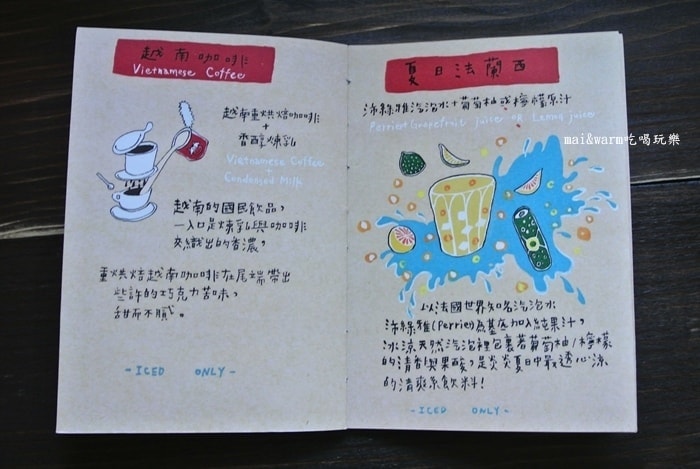 越南咖啡
Vietnamese Coffee
越南重烘焙咖啡
+
香醇煉乳
Vietnamese Coffee
+
Condensed Milk
越南的國民飲品，
一入口是煉乳與咖啡
交織出的香濃，
重烘焙越南咖啡在尾端帶出
些許的巧克力苦味，
甜而不膩。
-ICED ONLY-
夏日法蘭西
沛綠雅汽泡水+葡萄柚或檸檬原汁
Perrier+Grapefruit juice OR Lemon juice
mai&warm吃喝玩樂
以法國世界知名汽泡水
沛綠雅(Perrier)為基底加入純果汁，
冰涼天然汽泡裡包裹著葡萄柚/檸檬
的清香與果酸，是炎炎夏日中最透心涼
的清爽系飲料!
-ICED ONLY-